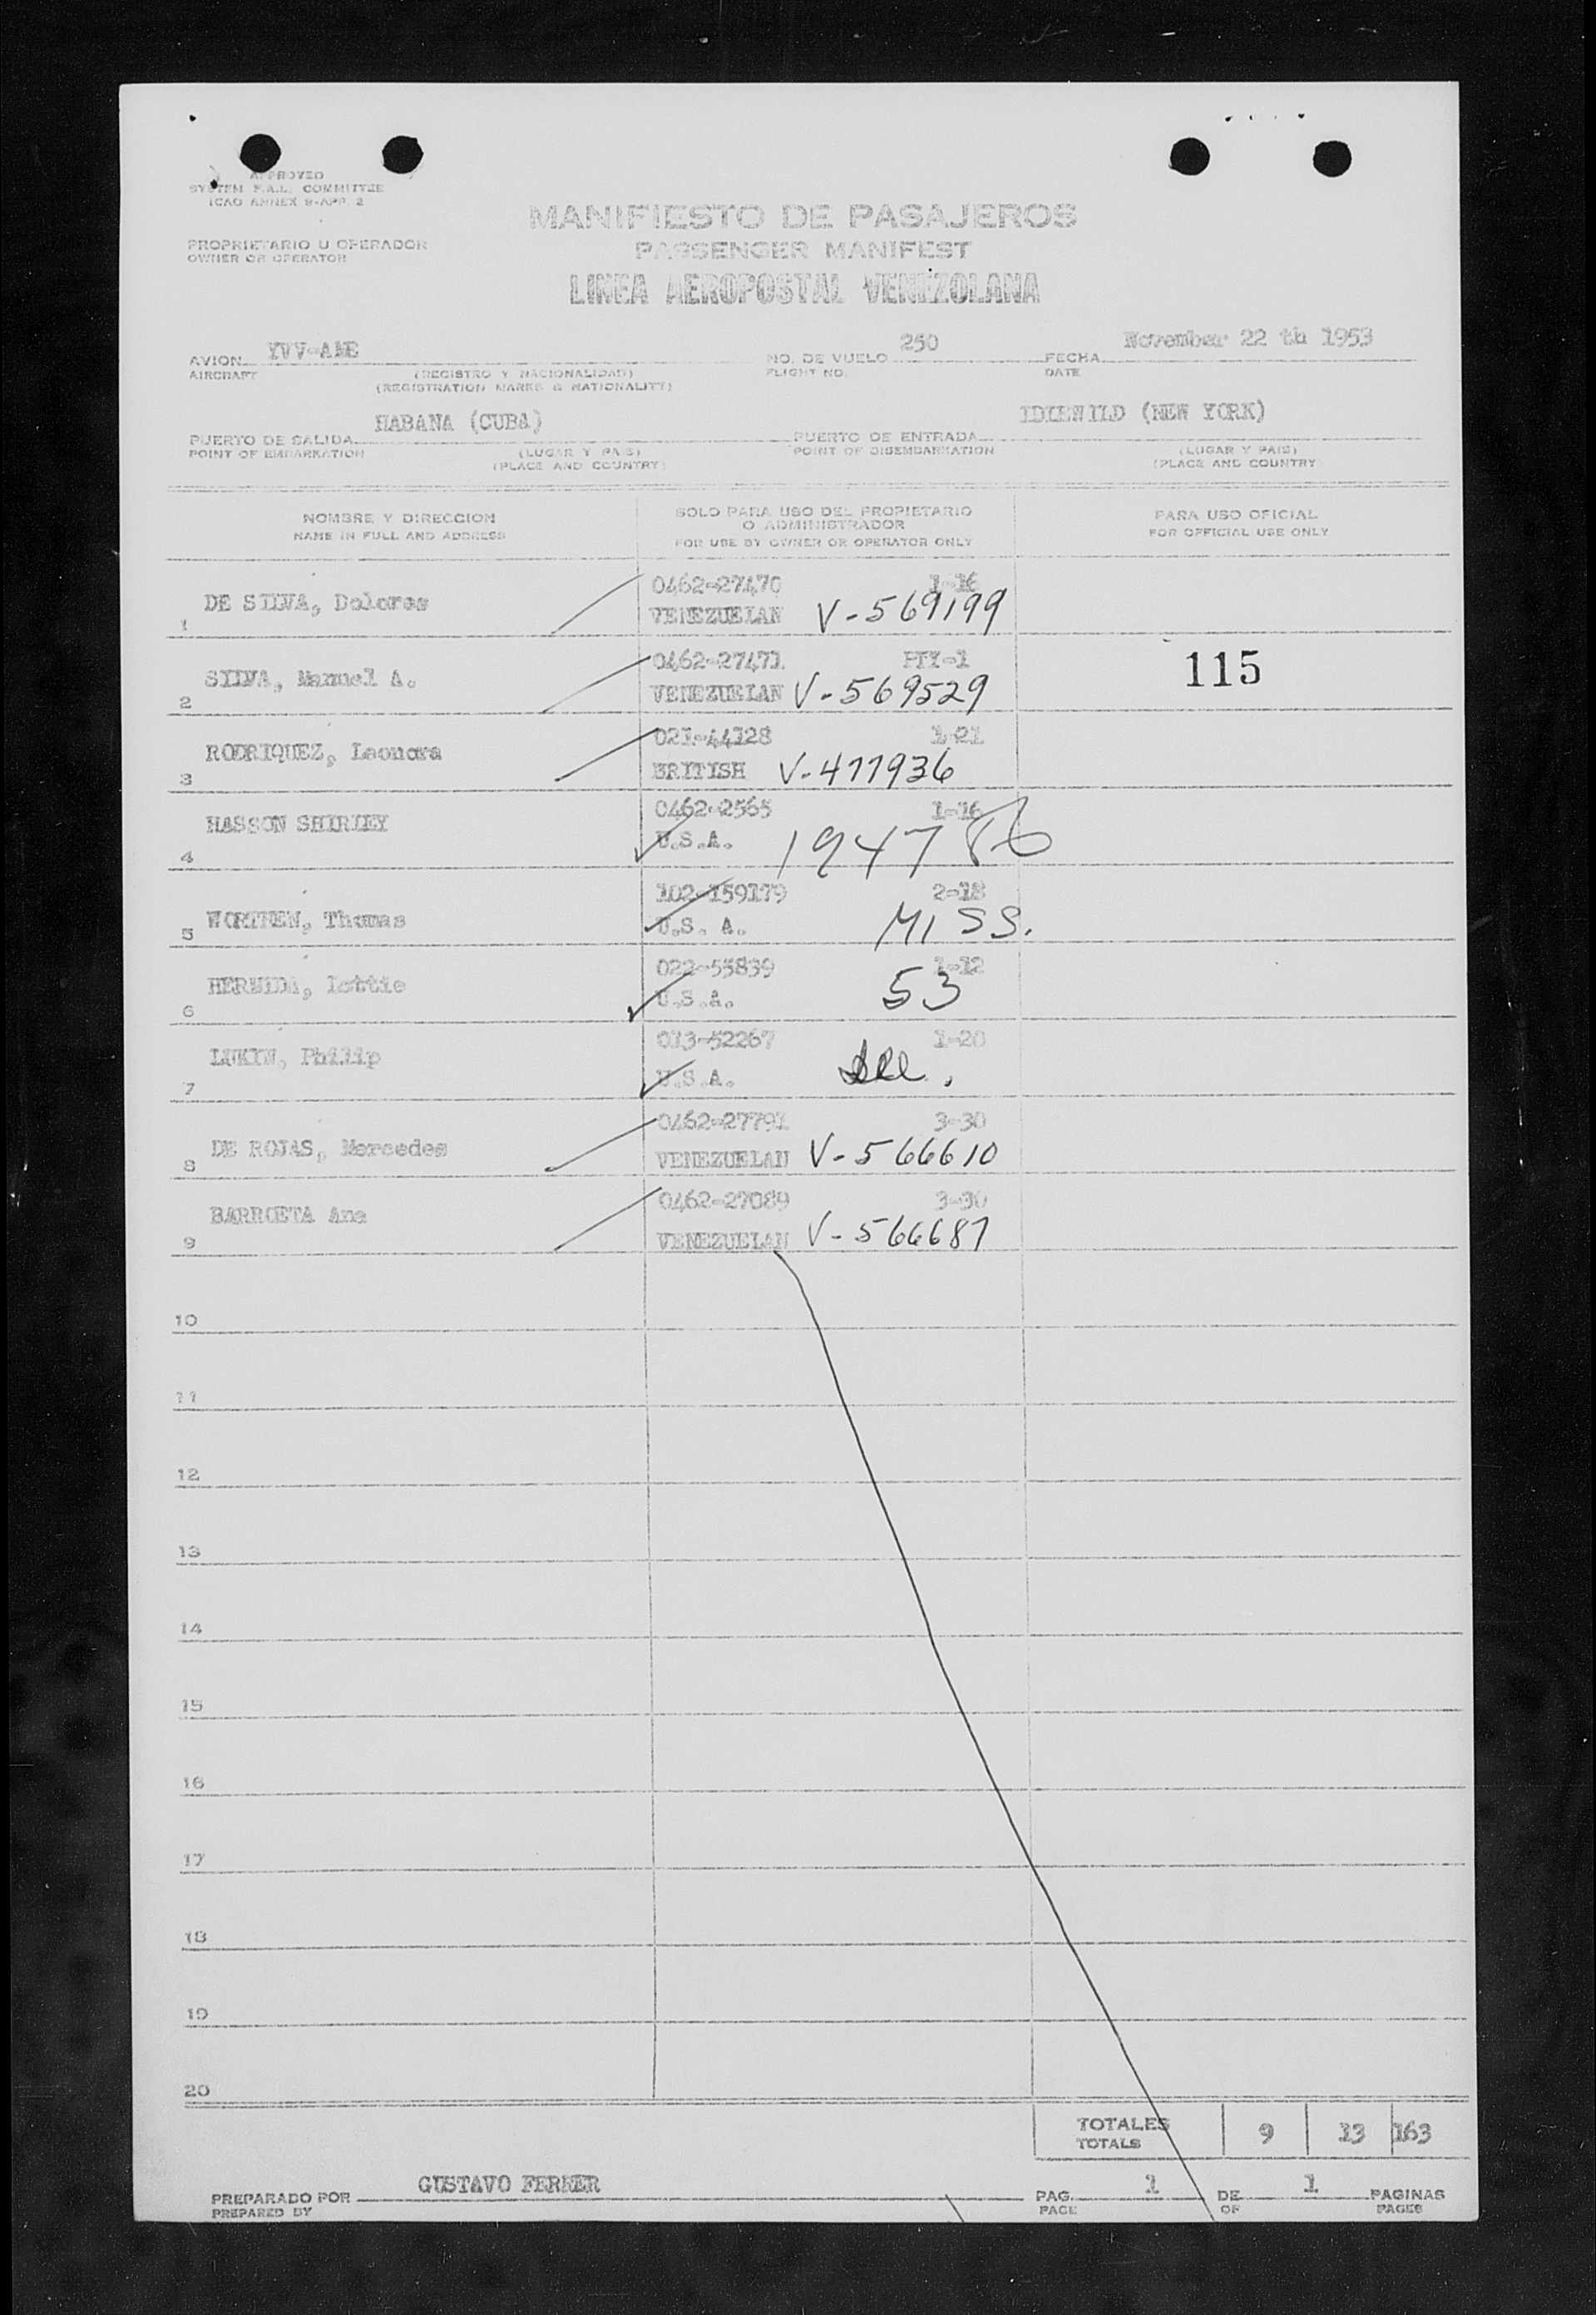 APPROVED
SYSTEM F.A.L. COMMITTEE
ICAO ANNEX 9-APP. 2
MANIFIESTO DE PASAJEROS
PASSENGER MANIFEST
LINEA AEROPOSTAL VENEZOLANA
PROPRIETARIO U OPERADOR
OWNER OR OPERATOR
AVION YVV-AME NO. DE VUELO 250 FECHA November 22 th 1953
AIRCRAFT (REGISTRO Y NACIONALIDAD) FLIGHT NO. DATE
(REGISTRATION MARKS & NATIONALITY)
PUERTO DE SALIDA HABANA (CUBA) PUERTO DE ENTRADA IDLEWILD (NEW YORK)
POINT OF EMBARKATION (LUGAR Y PAIS) POINT OF DISEMBARKATION (LUGAR Y PAIS)
(PLACE AND COUNTRY) (PLACE AND COUNTRY)
NOMBRE Y DIRECCION
NAME IN FULL AND ADDRESS
SOLO PARA USO DEL PROPIETARIO
O ADMINISTRADOR
FOR USE BY OWNER OR OPERATOR ONLY
PARA USO OFICIAL
FOR OFFICIAL USE ONLY
0462-27470 1-16
1 DE SILVA, Dolores VENEZUELAN V-569199
0462-27471 PTY-1 115
2 SILVA, Manuel A. VENEZUELAN V-569529
021-44128 1-21
3 RODRIQUEZ, Leonora BRITISH V-477936
0462-2565 1-16
4 HASSON SHIRLEY U.S.A. 1947
102-159179 2-18
5 WORTHEN, Thomas U.S. A. MISS.
022-55839 1-12
6 HERMIDA, Lottie U.S.A. 53
013-52267 1-20
7 LUKIN, Philip U.S.A.
0462-27791 3-30
8 DE ROJAS, Mercedes VENEZUELAN V-566610
0462-27089 3-30
9 BARROETA Ana VENEZUELAN V-566687
10
11
12
13
14
15
16
17
18
19
20
TOTALES 9 13 163
TOTALS
PREPARADO POR GUSTAVO FERRER PAG. 1 DE 1 PAGINAS
PREPARED BY PAGE OF PAGES